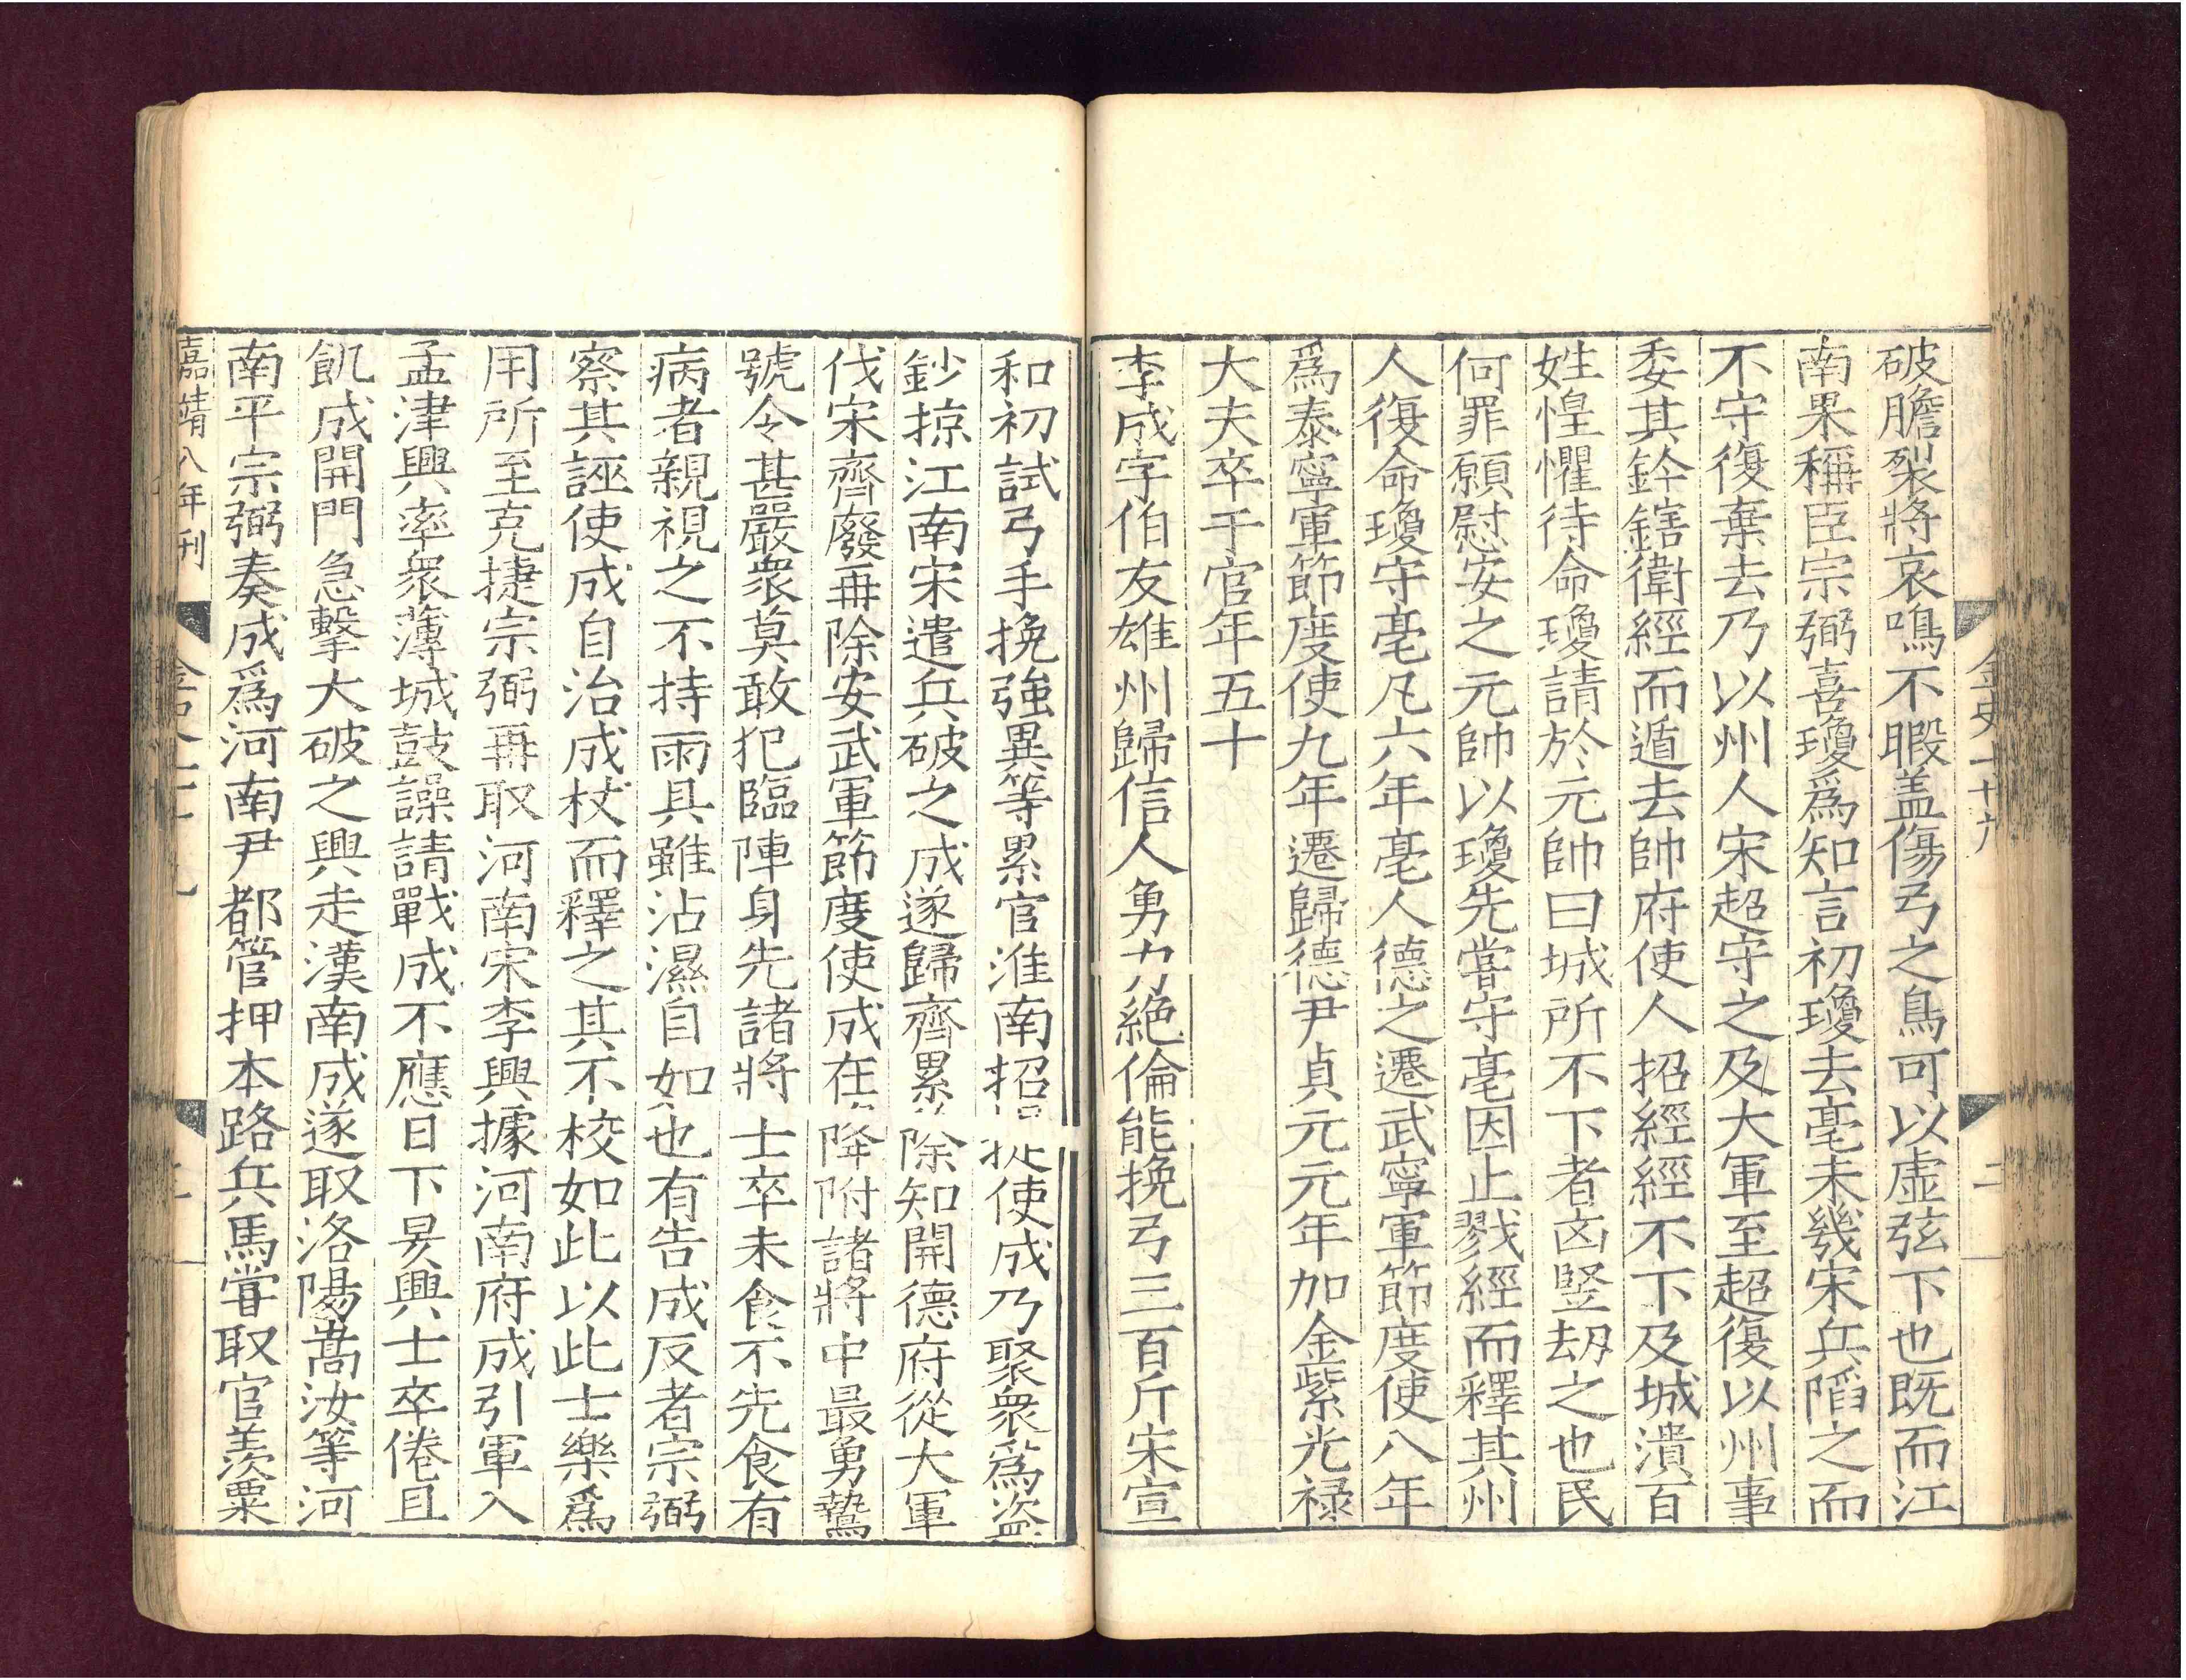 破膽裂將哀鳴不暇盖傷弓之鳥可以虛弦下也既而江
南果稱臣宗弼喜瓊爲知言初瓊去亳未幾宋兵陷之而
不守復棄去乃以州人宋超守之及大軍至超復以州事
委其鈐鎋衛經而遁去帥府使人招經經不下及城潰百
姓惶懼待命瓊請於元帥曰城所不下者凶竪刼之也民
何罪願慰安之元帥以瓊先嘗守亳因止戮經而釋其州
人復命瓊守亳凡六年亳人德之遷武寧軍節度使八年
爲泰寧軍節度使九年遷歸德尹貞元元年加金紫光禄
大夫卒于官年五十
李成字伯友雄州歸信人勇力絶倫能挽弓三百斤宋宣
和初試弓手挽強異等累官淮南招捉使成乃聚衆爲盗
鈔掠江南宋遣兵破之成遂歸齊累除知開德府從大軍
伐宋齊廢再除安武軍節度使成在降附諸將中最勇鷙
號令甚嚴衆莫敢犯臨陣身先諸將士卒未食不先食有
病者親視之不持雨具雖沾濕自如也有告成反者宗弼
察其誣使成自治成杖而釋之其不校如此以此士樂爲
用所至克捷宗弼再取河南宋李興據河南府成引軍入
孟津興率衆薄城鼓譟請戰成不應日下昃興士卒倦且
飢成開門急擊大破之興走漢南成遂取洛陽嵩汝等河
南平宗弼奏成爲河南尹都管押本路兵馬嘗取官羨粟
嘉靖八年刊